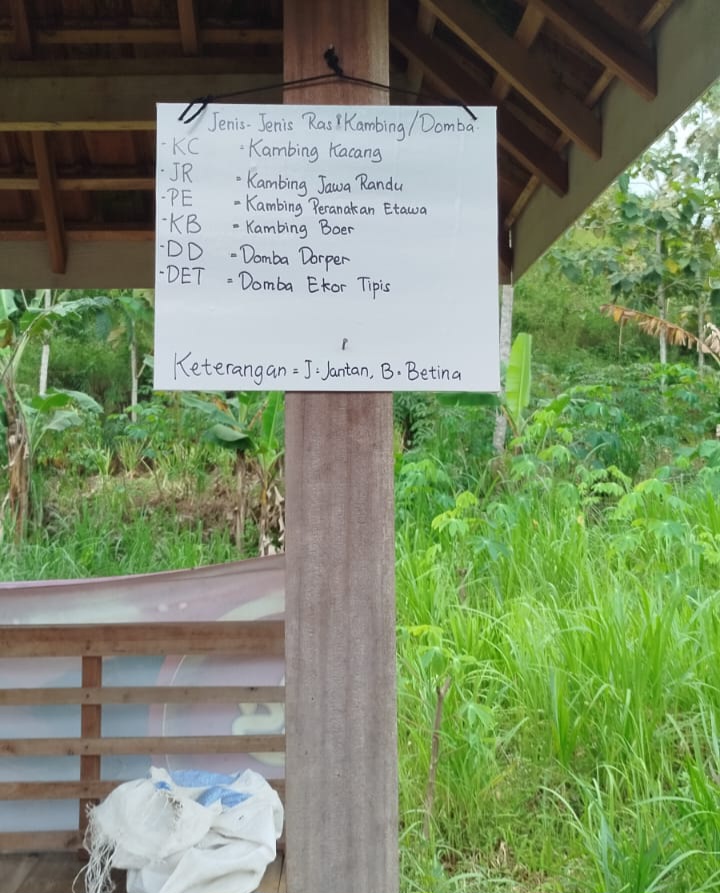 Jenis-Jenis Ras Kambing/Domba
-KC = Kambing Kacang
-JR = Kambing Jawa Randu
-PE = Kambing Peranakan Etawa
-KB = Kambing Boer
-DD = Domba Dorper
-DET = Domba Ekor Tipis
Keterangan = J = Jantan, B = Betina